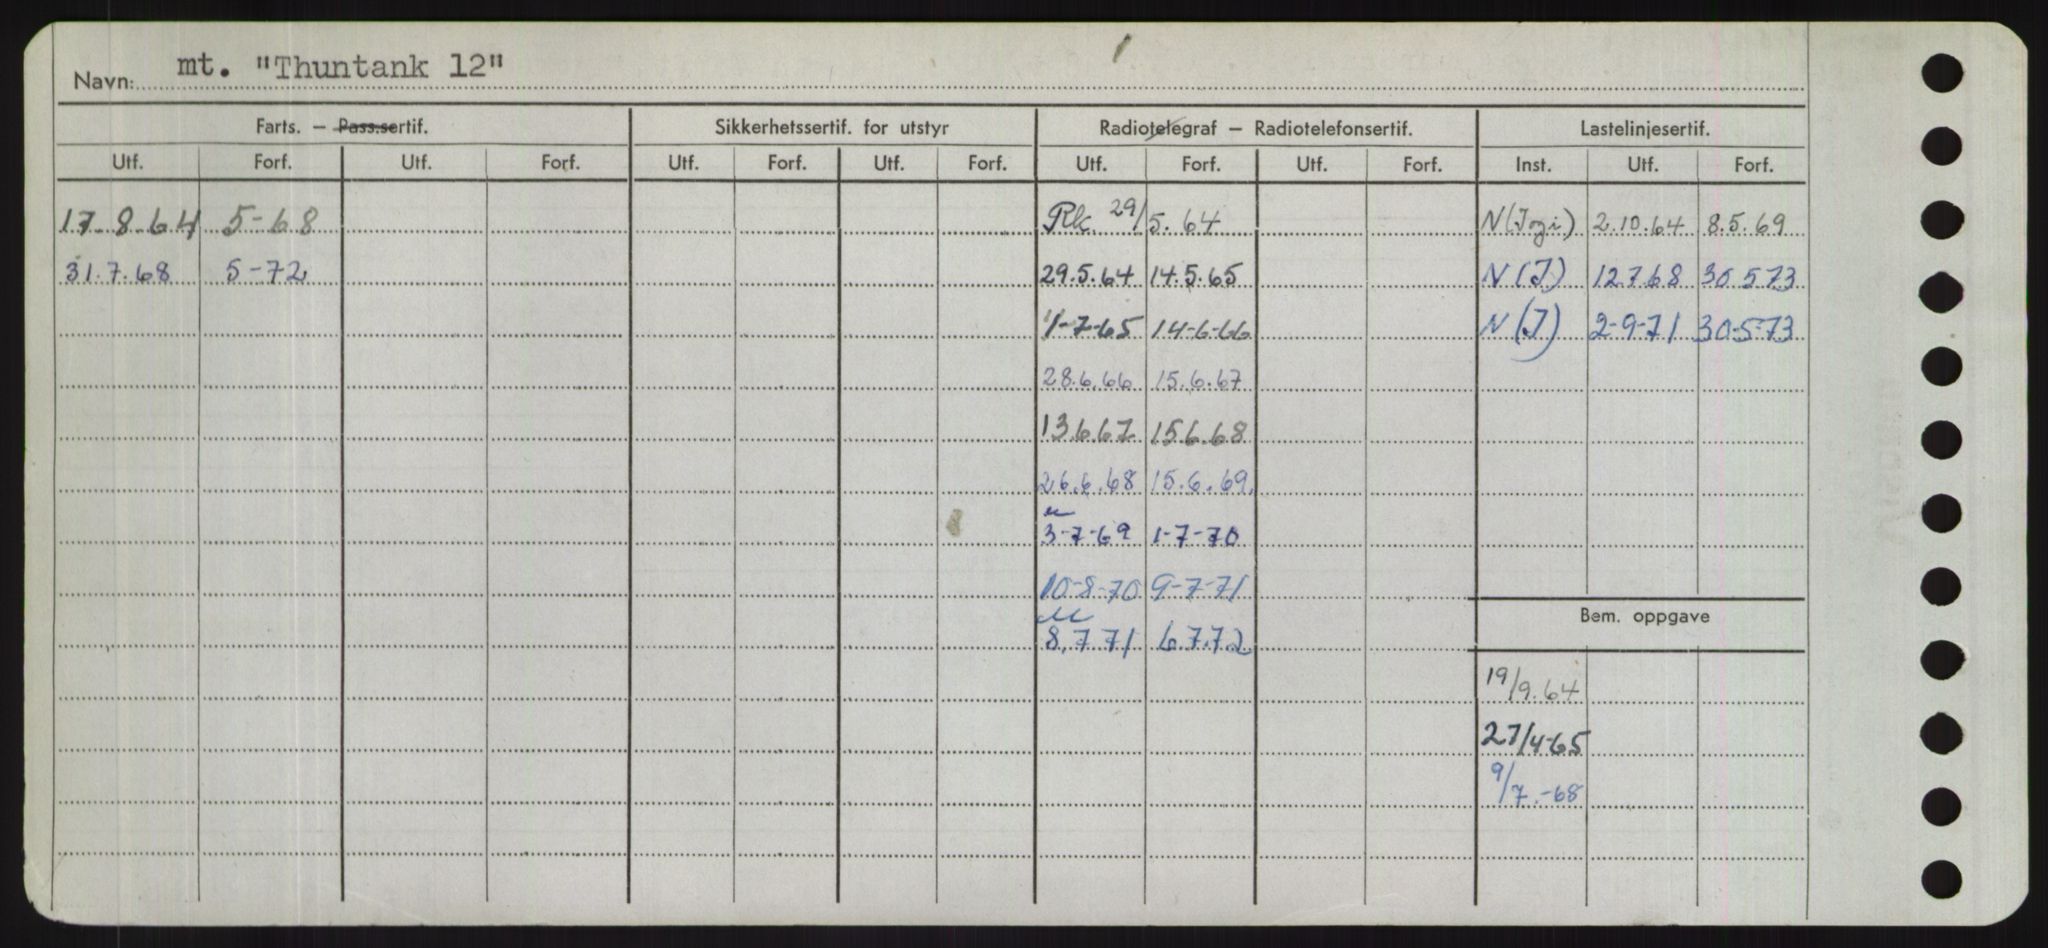 Navn: mt. "Thuntank 12"
Farts. – Pass.sertif. Sikkerhetssertif. for utstyr Radiotelegraf – Radiotelefonsertif. Lastelinjesertif.
Utf. Forf. Utf. Forf. Utf. Forf. Utf. Forf. Utf. Forf. Utf. Forf. Inst. Utf. Forf.
17.8.64 5-68 Rk. 29/5.64 N(Jogi) 2.10.64 8.5.69
31.7.68 5-72 29.5.64 14.5.65 N(J) 12.7.68 30.5.73
1-7-65 14-6-66 N(J) 2-9-71 30-5-73
28.6.66 15.6.67
13.6.67 15.6.68
26.6.68 15.6.69.
3-7-69 1-7-70
10-8-70 9-7-71
Bem. oppgave
8.7.71 6.7.72
19/9.64
27/4-65
9/7.-68